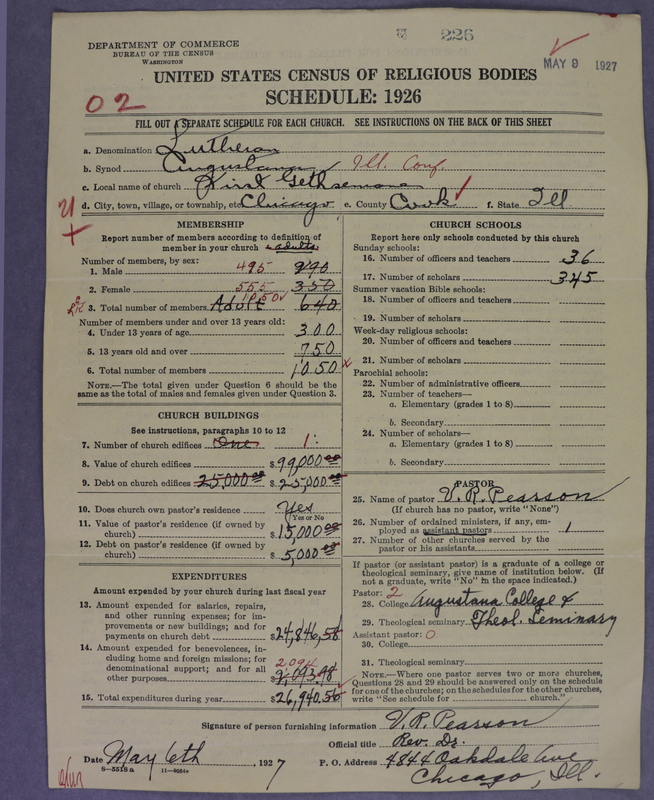 226
DEPARTMENT OF COMMERCE
BUREAU OF THE CENSUS
WASHINGTON
MAY 9 1927
UNITED STATES CENSUS OF RELIGIOUS BODIES
SCHEDULE: 1926
02
FILL OUT A SEPARATE SCHEDULE FOR EACH CHURCH. SEE INSTRUCTIONS ON THE BACK OF THIS SHEET
a. Denomination Lutheran
b. Synod Augustana Ill. Conf.
c. Local name of church First Gethsemane
d. City, town, village, or township, etc. Chicago e. County Cook f. State Ill
MEMBERSHIP
Report number of members according to definition of
member in your church adults
Number of members, by sex:
1. Male 495 290
2. Female 555 350
3. Total number of members Adult 1050 640
Number of members under and over 13 years old:
4. Under 13 years of age 300
5. 13 years old and over 750
6. Total number of members 1050 x
NOTE.—The total given under Question 6 should be the
same as the total of males and females given under Question 3.
CHURCH BUILDINGS
See instructions, paragraphs 10 to 12
7. Number of church edifices One 1
8. Value of church edifices $ 99,000.00
9. Debt on church edifices 25,000.00 $ 25,000.00
10. Does church own pastor's residence Yes
(Yes or No)
11. Value of pastor's residence (if owned by
church) $ 15,000.00
12. Debt on pastor's residence (if owned by
church) $ 5,000.00
EXPENDITURES
Amount expended by your church during last fiscal year
13. Amount expended for salaries, repairs,
and other running expenses; for im-
provements or new buildings; and for
payments on church debt $ 24,846,58
14. Amount expended for benevolences, in-
cluding home and foreign missions; for
denominational support; and for all
other purposes 2094 $ 2,093.98
15. Total expenditures during year $ 26,940.56
CHURCH SCHOOLS
Report here only schools conducted by this church
Sunday schools:
16. Number of officers and teachers 36
17. Number of scholars 345
Summer vacation Bible schools:
18. Number of officers and teachers
19. Number of scholars
Week-day religious schools:
20. Number of officers and teachers
21. Number of scholars
Parochial schools:
22. Number of administrative officers
23. Number of teachers—
a. Elementary (grades 1 to 8)
b. Secondary
24. Number of scholars—
a. Elementary (grades 1 to 8)
b. Secondary
PASTOR
25. Name of pastor V. R. Pearson
(If church has no pastor, write "None")
26. Number of ordained ministers, if any, em-
ployed as assistant pastors 1
27. Number of other churches served by the
pastor or his assistants
If pastor (or assistant pastor) is a graduate of a college or
theological seminary, give name of institution below. (If
not a graduate, write "No" in the space indicated.)
Pastor: 2
28. College Augustana College &
29. Theological seminary Theol. Seminary
Assistant pastor: 0
30. College
31. Theological seminary
NOTE.—Where one pastor serves two or more churches,
Questions 28 and 29 should be answered only on the schedule
for one of the churches; on the schedules for the other churches,
write "See schedule for church."
Signature of person furnishing information V. R. Pearson
Official title Rev. Dr.
Date May 6th, 1927 P. O. Address 4844 Oakdale Ave
8—5518 a
Chicago, Ill.